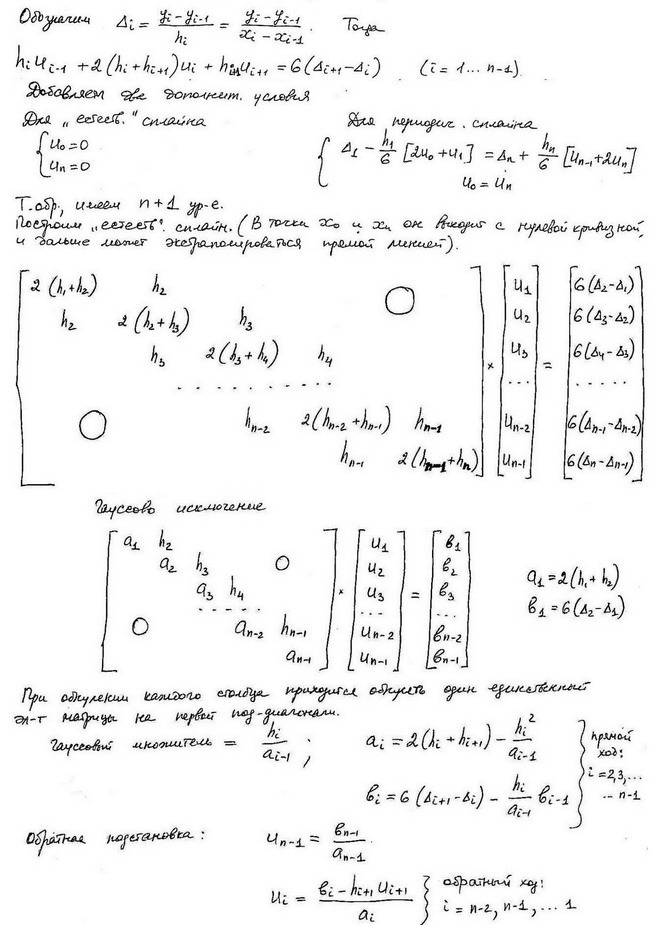 Обозначим Δi = (yi - yi-1)/hi = (yi - yi-1)/(xi - xi-1). Тогда
hi ui-1 + 2(hi + hi+1)ui + hi+1 ui+1 = 6(Δi+1 - Δi) (i = 1... n-1).
Добавляем две дополнит. условия
Для „естеств." сплайна
{ u0 = 0
un = 0
Для периодич. сплайна
{ Δ1 - h1/6 [2u0 + u1] = Δn + hn/6 [un-1 + 2un]
u0 = un
Т. обр., имеем n+1 ур-е.
Построим „естеств". сплайн. (В точки x0 и xn он выходит с нулевой кривизной,
и дальше может экстраполироваться прямой линией).
[ 2(h1+h2) h2 0 ] [ u1 ] [ 6(Δ2-Δ1) ]
h2 2(h2+h3) h3 u2 6(Δ3-Δ2)
h3 2(h3+h4) h4 × u3 = 6(Δ4-Δ3)
. . . . . . . . . . ... . . . . .
0 hn-2 2(hn-2+hn-1) hn-1 un-2 6(Δn-1-Δn-2)
hn-1 2(hn-1+hn) un-1 6(Δn-Δn-1)
Гауссово исключение
[ a1 h2 ] [ u1 ] [ в1 ]
a2 h3 0 u2 в2 a1 = 2(h1+h2)
a3 h4 × u3 = в3 в1 = 6(Δ2-Δ1)
. . . . . ... ...
0 an-2 hn-1 un-2 вn-2
an-1 un-1 вn-1
При обнулении каждого столбца приходится обнулять один единственный
эл-т матрицы на первой под-диагонали.
Гауссовый множитель = hi/ai-1 ; ai = 2(hi + hi+1) - hi²/ai-1
вi = 6(Δi+1 - Δi) - hi/ai-1 вi-1
} прямой
ход:
i = 2,3,...
... n-1
Обратная подстановка: un-1 = вn-1/an-1.
ui = (вi - hi+1 ui+1)/ai } обратный ход:
i = n-2, n-1, ... 1